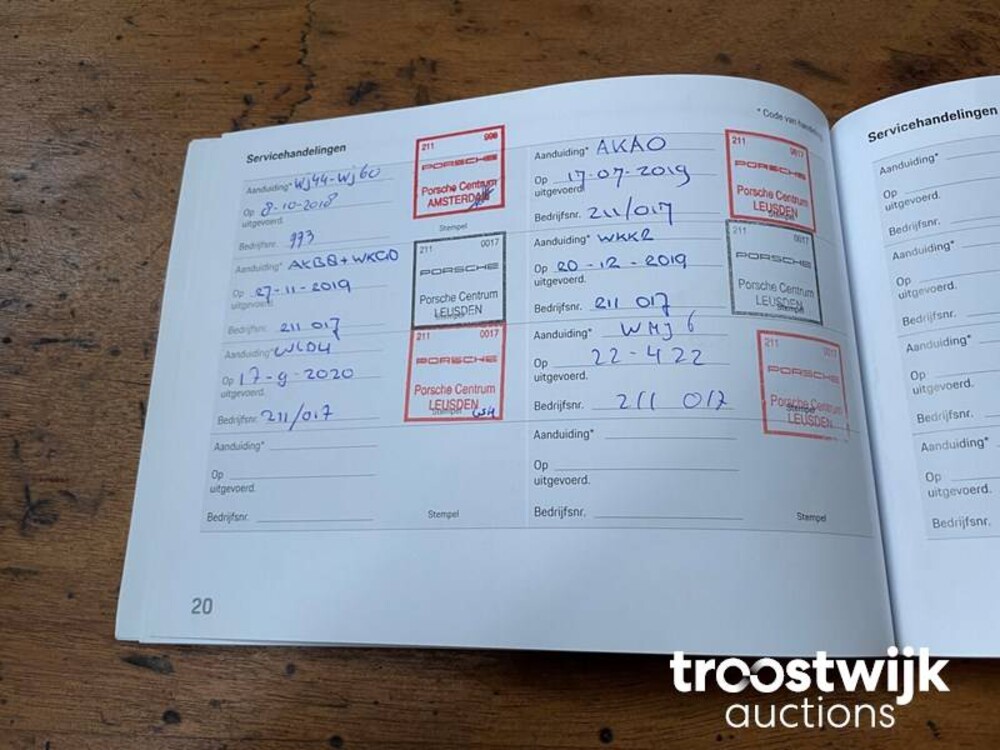 Servicehandelingen
* Code van
Aanduiding* Wj44-Wj60
Op 8-10-2018
uitgevoerd.
Bedrijfsnr. 993
Stempel
211 998
PORSCHE
Porsche Centrum
AMSTERDAM
Aanduiding* AKAO
Op 17-07-2019
uitgevoerd
Bedrijfsnr. 211/017
211 0017
PORSCHE
Porsche Centrum
LEUSDEN
Aanduiding* AKB8+WKC0
Op 27-11-2019
uitgevoerd.
Bedrijfsnr. 211 017
211 0017
PORSCHE
Porsche Centrum
LEUSDEN
Stempel
Aanduiding* WKK2
Op 20-12-2019
uitgevoerd.
Bedrijfsnr. 211 017
211 0017
PORSCHE
Porsche Centrum
LEUSDEN
Stempel
Aanduiding* WLD4
Op 17-9-2020
uitgevoerd.
Bedrijfsnr. 211/017
211 0017
PORSCHE
Porsche Centrum
LEUSDEN
Stempel
Aanduiding* WMj6
Op 22-4 22
uitgevoerd.
Bedrijfsnr. 211 017
211 0017
PORSCHE
Porsche Centrum
LEUSDEN
Stempel
Aanduiding*
Op
uitgevoerd.
Bedrijfsnr.
Stempel
Aanduiding*
Op
uitgevoerd.
Bedrijfsnr.
Stempel
20
Servicehandelingen
Aanduiding*
Op
uitgevoerd.
Bedrijfsnr.
Aanduiding*
Op
uitgevoerd.
Bedrijfsnr.
Aanduiding*
Op
uitgevoerd.
Bedrijfsnr.
Aanduiding*
Op
uitgevoerd.
Bedrijfsnr.
troostwijk
auctions